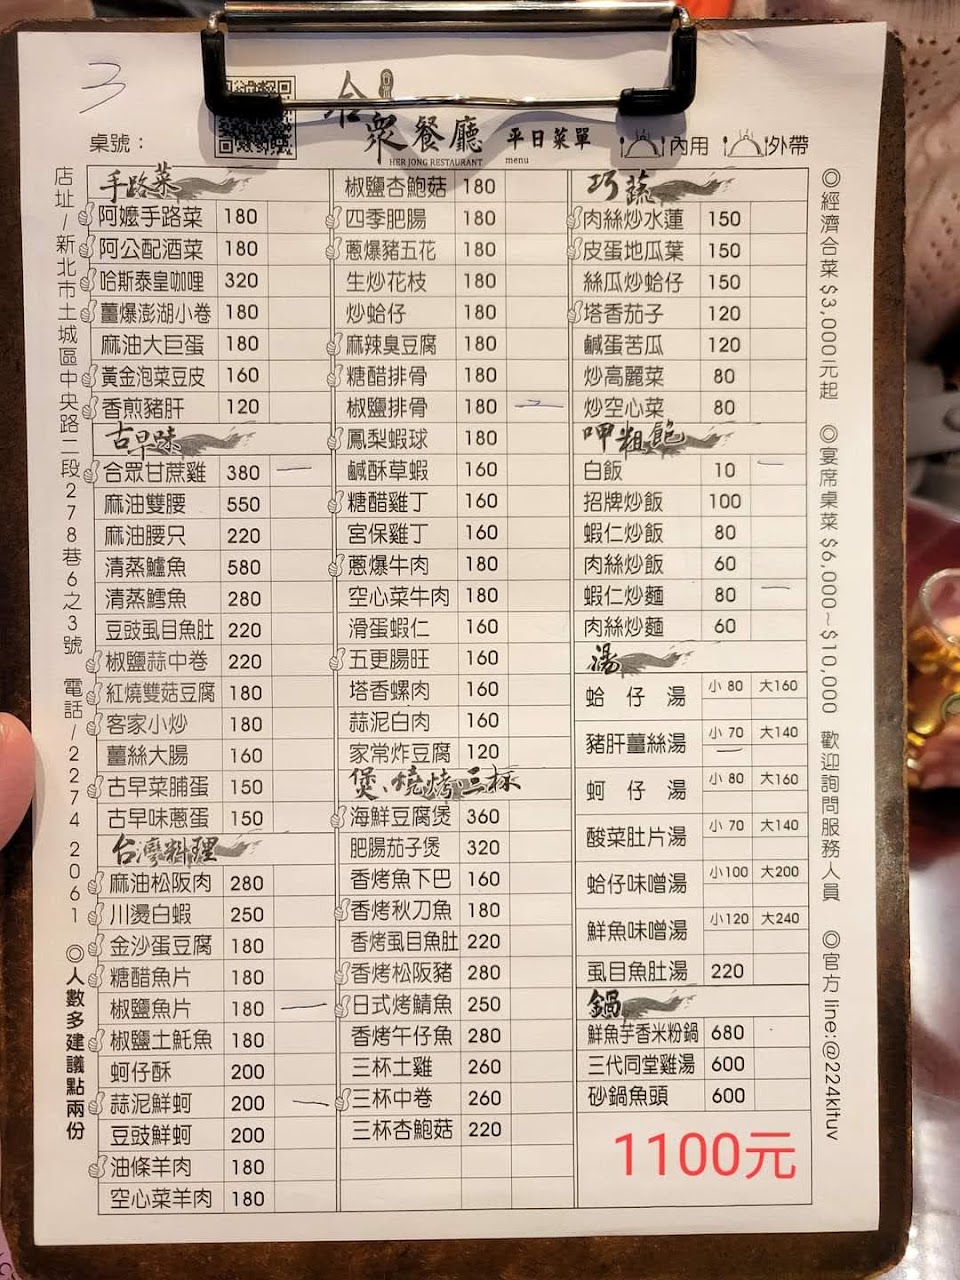 3
桌號：
合眾餐廳 平日菜單
HER JONG RESTAURANT menu
內用 外帶
店址/新北市土城區中央路二段278巷6之3號 電話/2274 2061 ◎人數多建議點兩份
手路菜
阿嬤手路菜 180
阿公配酒菜 180
哈斯泰皇咖哩 320
薑爆澎湖小卷 180
麻油大巨蛋 180
黃金泡菜豆皮 160
香煎豬肝 120
古早味
合眾甘蔗雞 380 一
麻油雙腰 550
麻油腰只 220
清蒸鱸魚 580
清蒸鱈魚 280
豆豉虱目魚肚 220
椒鹽蒜中卷 220
紅燒雙菇豆腐 180
客家小炒 180
薑絲大腸 160
古早菜脯蛋 150
古早味蔥蛋 150
台灣料理
麻油松阪肉 280
川燙白蝦 250
金沙蛋豆腐 180
糖醋魚片 180
椒鹽魚片 180 一
椒鹽土魠魚 180
蚵仔酥 200
蒜泥鮮蚵 200 一
豆豉鮮蚵 200
油條羊肉 180
空心菜羊肉 180
椒鹽杏鮑菇 180
四季肥腸 180
蔥爆豬五花 180
生炒花枝 180
炒蛤仔 180
麻辣臭豆腐 180
糖醋排骨 180
椒鹽排骨 180 一
鳳梨蝦球 180
鹹酥草蝦 160
糖醋雞丁 160
宮保雞丁 160
蔥爆牛肉 180
空心菜牛肉 180
滑蛋蝦仁 160
五更腸旺 160
塔香螺肉 160
蒜泥白肉 160
家常炸豆腐 120
煲、燒烤、三杯
海鮮豆腐煲 360
肥腸茄子煲 320
香烤魚下巴 160
香烤秋刀魚 180
香烤虱目魚肚 220
香烤松阪豬 280
日式烤鯖魚 250
香烤午仔魚 280
三杯土雞 260
三杯中卷 260
三杯杏鮑菇 220
巧蔬
肉絲炒水蓮 150
皮蛋地瓜葉 150
絲瓜炒蛤仔 150
塔香茄子 120
鹹蛋苦瓜 120
炒高麗菜 80
炒空心菜 80
呷粗飽
白飯 10 一
招牌炒飯 100
蝦仁炒飯 80
肉絲炒飯 60
蝦仁炒麵 80 一
肉絲炒麵 60
湯
蛤仔湯 小 80 大160
豬肝薑絲湯 小 70 大140 一
蚵仔湯 小 80 大160
酸菜肚片湯 小 70 大140
蛤仔味噌湯 小100 大200
鮮魚味噌湯 小120 大240
虱目魚肚湯 220
鍋
鮮魚芋香米粉鍋 680
三代同堂雞湯 600
砂鍋魚頭 600
1100元
◎經濟合菜$3,000元起 ◎宴席桌菜$6,000~$10,000 歡迎詢問服務人員 ◎官方line:@224kltuv